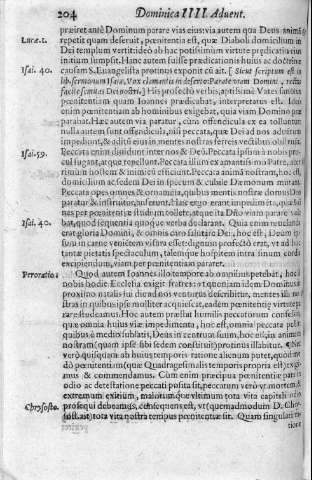 204 Dominica IIII. Advent.
præiret ante Dominum parare vias eius: via autem qua Deus animã
Lucæ.1. repetit quam deseruit, pœnitentia est, quæ Diaboli domicilium in
Dei templum vertit: ideò ab hac potissimùm virtute prædicationis
initium sumpsit. Hanc autem fuisse prædicationis huius ac doctrinæ
Isai. 40. causam S. Euangelista protinus exponit cùm ait. [Sicut scriptum est in
lib. sermonum Isaiæ, Vox clamantis in deserto: Parate viam Domini, rectas
facite semitas Dei nostri.] His prophetæ verbis, aptissimè Vates sanctus
pœnitentiam quam Ioannes prædicabat, interpretatus est. Idem
enim pœnitentiam ab hominibus exigebat, quia viam Domino præ
parabat. Hæc autem via paratur, cùm offendicula ex ea tolluntur:
nulla autem sunt offendicula, nisi peccata, quæ Dei ad nos aditum
impediunt, & aditus eius in mentes nostras ferreis vectibus obstruunt.
Isai. 59. Peccata enim dividunt inter nos & Deũ. Peccata ipsum à nobis pro-
cul fugant, atque repellunt. Peccata illum ex amantissimo Patre, acer
rimum hostem & inimicũ efficiunt. Peccata animã nostram, hoc est,
domicilium ac sedem Dei in specum & cubile Dæmonum mutant.
Peccata opes omnes, & ornamenta, quibus mentis nostræ domus Deo
paratur & instruitur, auferunt. Hæc ergo errant impedimenta, quæ Io
nes per pœnitentiæ studium tollere, atque ita Dño viam parare sata
Isai. 40. bat, quod sequentia quoque verba declarant. Quia enim revelanda
erat gloria Domini, & omnis caro salutare Dei, hoc est, Deum ip-
sum in carne venientem visura esset: dignum profectò erat, vt ad hoc
tantæ pietatis spectaculum, talemque hospitem intra sinum cordis
excipiendum, viam per pœnitentiam pararet.
Peroratio. Quod autem Ioannes illo tempore ab omnibus petebat, hoc à
nobis hodie Ecclesia exigit fratres: vt quoniam idem Dominus
proximo natalis sui die ad nos venturus describitur, mentes illi nost
tras in quibus ipse molliter acquiescat, eadem pœnitentiæ virtute pa-
rare studeamus. Hoc autem præstat humilis peccatorum confessio,
quæ omnia huius viæ impedimenta, hoc est, omnia peccata pelit:
quibus è medio sublatis, Deus in centrum suum, hoc est, in animã
nostram (quam ipse sibi sedem constituit) protinus illabitur. Nec
verò quisquam ab huius temporis ratione alienum putet, quòd mo
dò pœnitentiam (quæ Quadragesimalis temporis propria est) exigi-
mus & commendamus. Cùm enim præcipua pœnitentiæ pars in
odio ac detestatione peccati posita sit, peccarum verò vt mortem &
extremum exitium, maiorumque vltimum tota vita capitali odio
Chrysosto. prosequi debeamus, consequens est, vt (quemadmodum D. Chry-
sost. ait) tota vita nostra tempus pœnitentiæ sit. Quam singulari ra-
tione